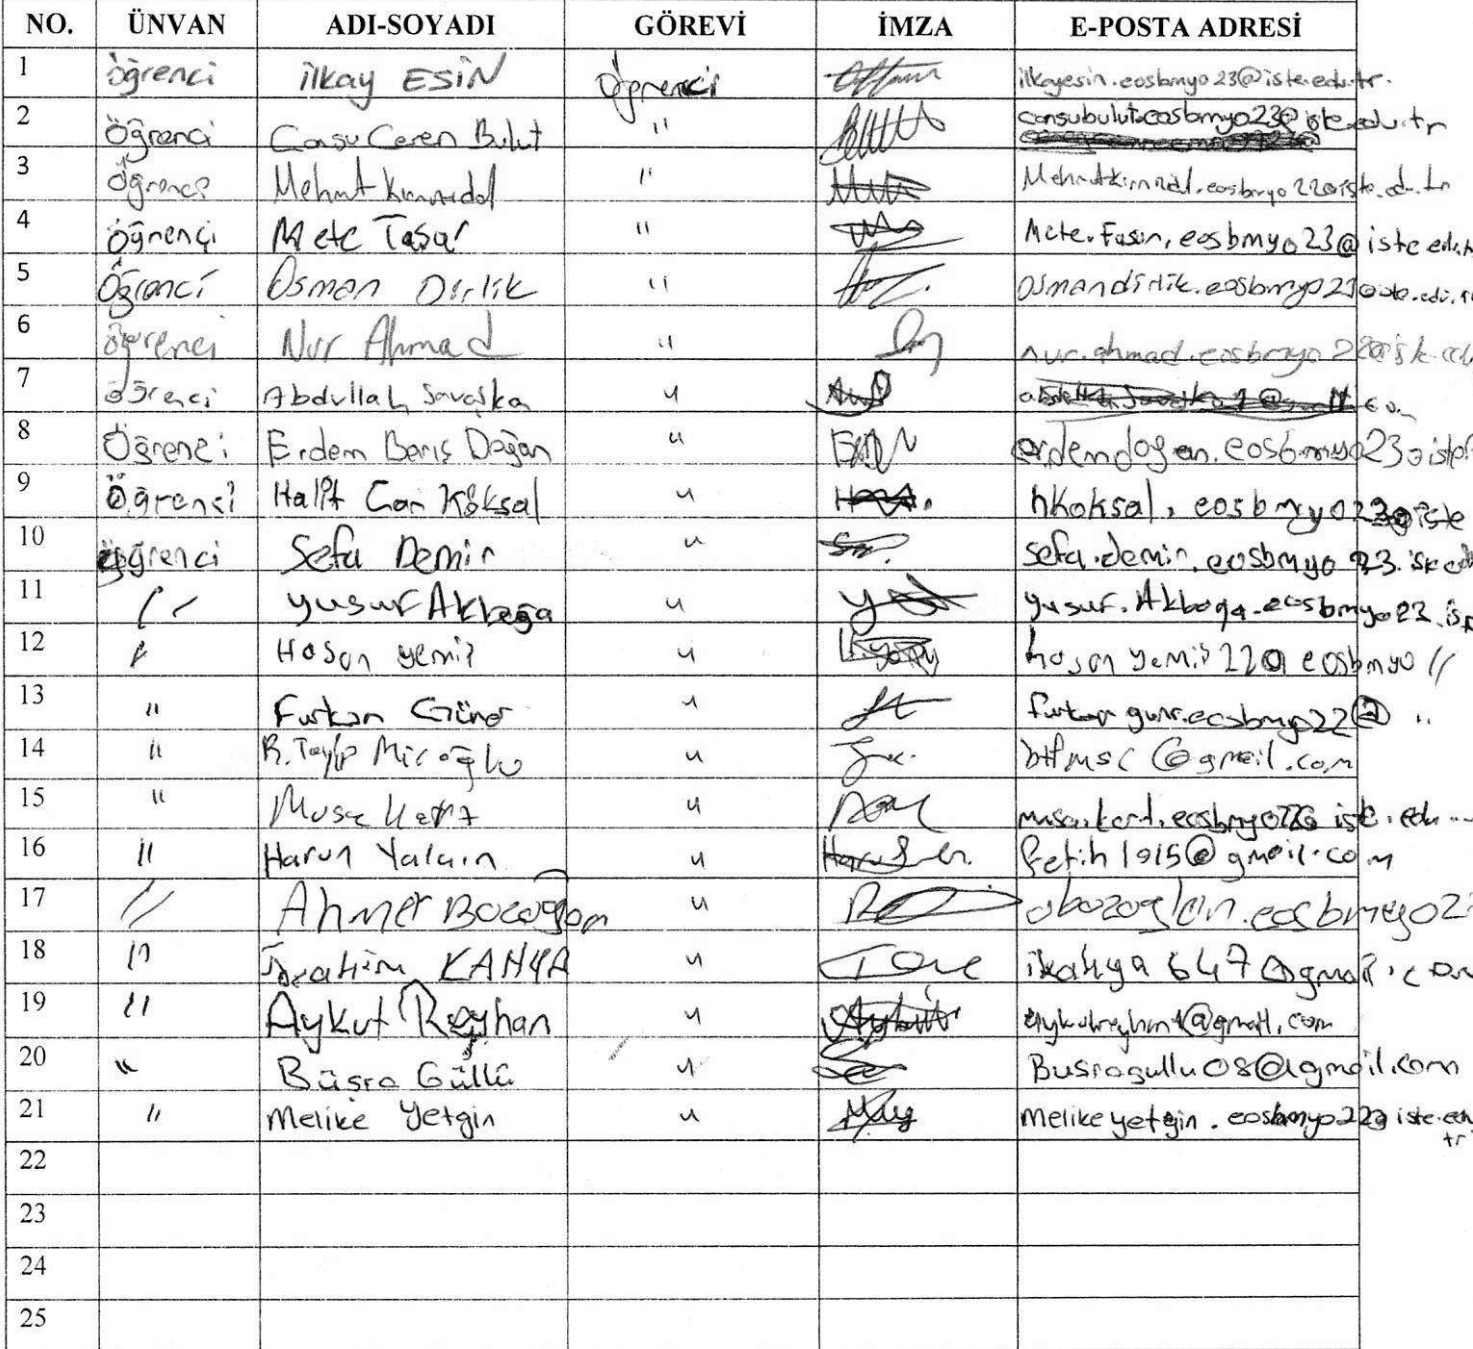 NO. ÜNVAN ADI-SOYADI GÖREVİ İMZA E-POSTA ADRESİ
1 öğrenci ilkay ESİN Öğrenci ilkayesin.eosbmyo23@iste.edu.tr.
2 Öğrenci Cansu Ceren Bulut " cansubulut.eosbmyo23@iste.edu.tr
3 Öğrenci Mehmet "
4 Öğrenci Mete Taşar " Mete.Fasar.eosbmyo23@iste.edu.t
5 Öğrenci Osman Dirlik " osmandirlik.eosbmyo23@iste.edu.tr
6 öğrenci Nur Ahmad " nur.ahmad.eosbmyo22@iste.edu
7 öğrenci Abdullah Savaşka "
8 Öğrenci Erdem Barış Doğan " erdemdogan.eosbmyo23@iste
9 Öğrenci Halit Can Köksal " hkoksal.eosbmyo23@iste
10 öğrenci Sefa Demir " sefa.demir.eosbmyo23.iste.edu
11 " Yusuf Akboğa " yusuf.Akboga.eosbmyo22.iste
12 " Hasan yemiş " hasan yemiş22@eosbmyo "
13 " Furkan Güner " eosbmyo22@ "
14 " R.Tayip Miroğlu " btfmsc@gmail.com
15 " Musa " eosbmyo22@iste.edu
16 " Harun Yalçın " fetih1915@gmail.com
17 " Ahmet Bozoğlan " abozoglan.eosbmyo2
18 " İbrahim KAHYA " ikahya647@gmail.com
19 " Aykut Reyhan " aykutreyhan1@gmail.com
20 " Büşra Güllü " Busragullu08@gmail.com
21 " Melike Yetgin " melikeyetgin.eosbmyo22@iste.edu
tr
22
23
24
25